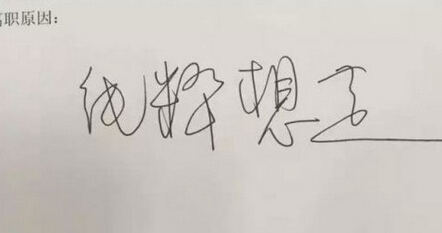 离职原因:
纯粹想走